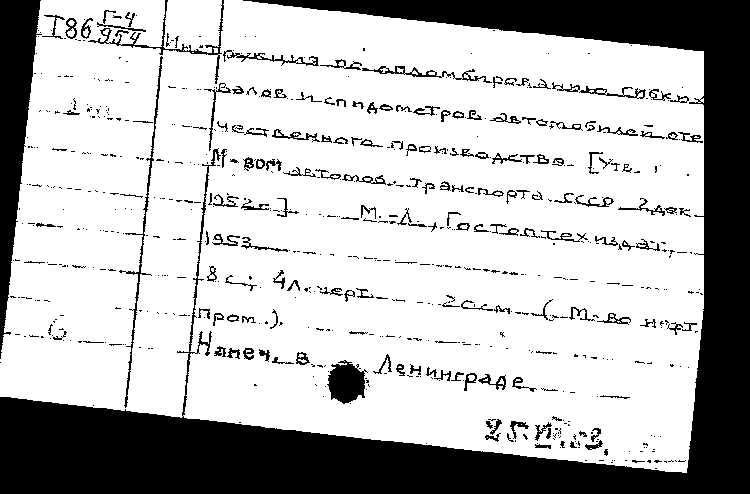 Т86 Г-4
954
Инструкция по опломбированию гибких
валов и спидометров автомобилей оте
чественного производства. [Утв.
М-вом автомоб. транспорта СССР 2 дек.
1952 г.] М.-Л., Гостоптехиздат,
1953
8 с.; 4 л. черт. 20 см (М-во нефт.
пром.).
Напеч. в Ленинграде.
6